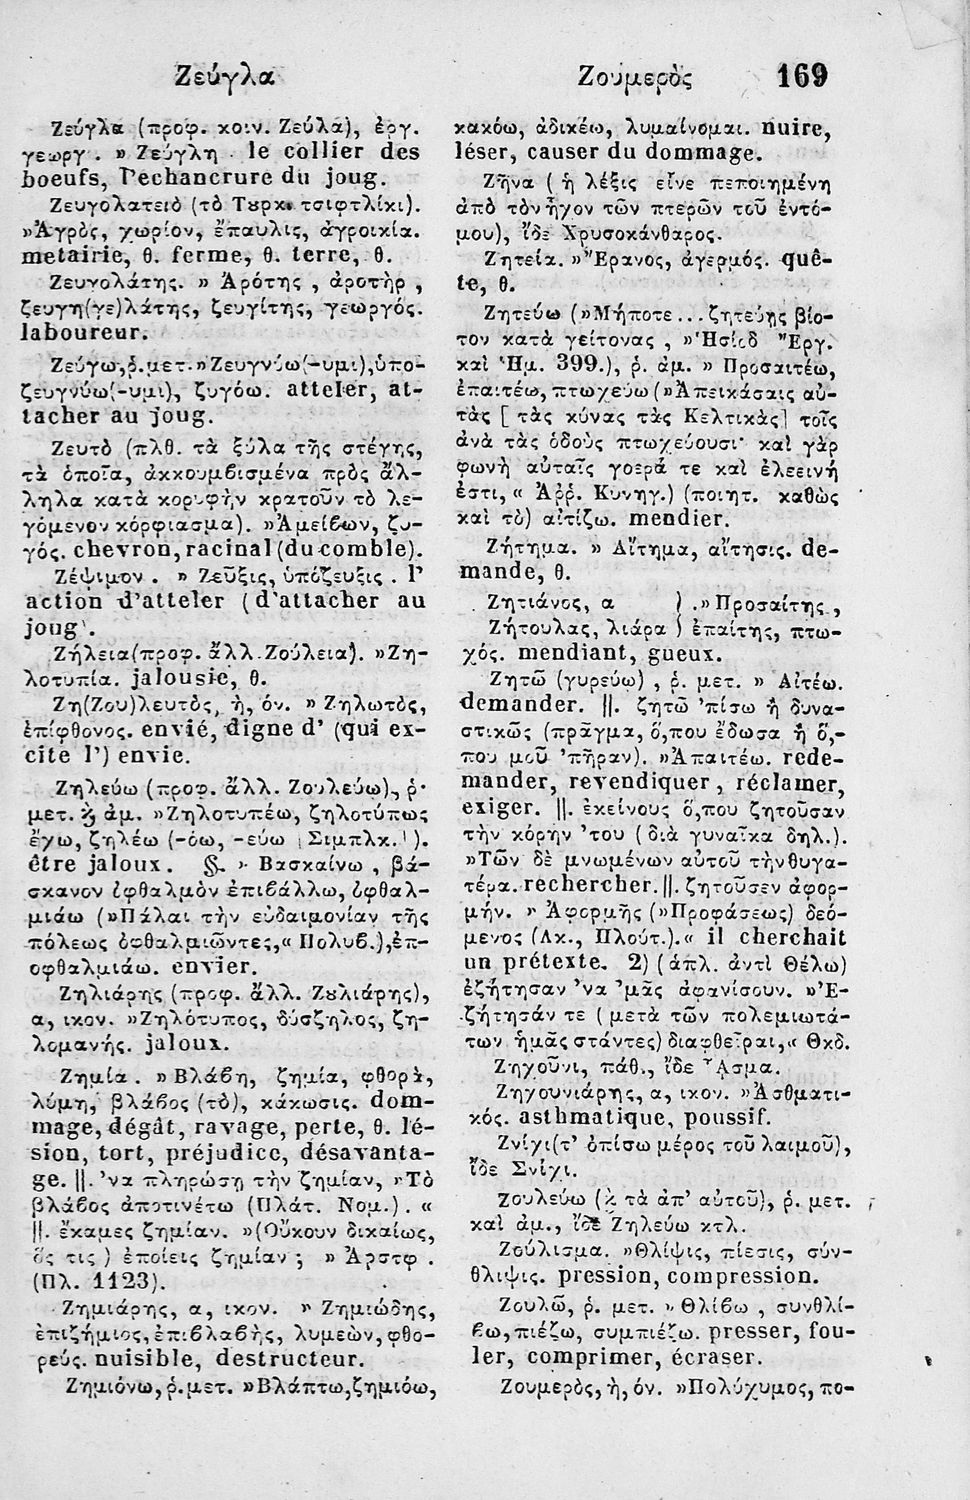 Ζεύγλα
Ζουμερὸς 169
Ζεύγλα (προφ. κοιν. Ζεύλα), ἐργ.
γεωργ. » Ζεύγλη · le collier des
boeufs, l'echancrure du joug.
Ζευγολατειὸ (τὸ Τȣρκ. τσιφτλίκι).
»Ἀγρὸς, χωρίον, ἔπαυλις, ἀγροικία.
metairie, θ. ferme, θ. terre, θ.
Ζευγολάτης. » Ἀρότης, ἀροτὴρ,
ζευγη(γε)λάτης, ζευγίτης, γεωργός.
laboureur.
Ζεύγω,ῥ.μετ.»Ζευγνύω(-υμι),ὑπο-
ζευγνύω(-υμι), ζυγόω. atteler, at-
tacher au joug.
Ζευτὸ (πλθ. τὰ ξύλα τῆς στέγης,
τὰ ὁποῖα, ἀκκουμβισμένα πρὸς ἄλ-
ληλα κατὰ κορυφὴν κρατοῦν τὸ λε-
γόμενον κόρφιασμα). »Ἀμείβων, ζυ-
γός. chevron, racinal (du comble).
Ζέψιμον. » Ζεῦξις, ὑπόζευξις. l'
action d'atteler (d'attacher au
joug).
Ζήλεια(προφ. ἄλλ. Ζούλεια). »Ζη-
λοτυπία. jalousie, θ.
Ζη(Ζου)λευτὸς, ἡ, όν. » Ζηλωτὸς,
ἐπίφθονος. envié, digne d' (qui ex-
cite l') envie.
Ζηλεύω (προφ. ἄλλ. Ζουλεύω), ῥ·
μετ. ϗ ἀμ. »Ζηλοτυπέω, ζηλοτύπως
ἔχω, ζηλέω (-όω, -εύω (Σιμπλκ.)).
être jaloux. §. » Βασκαίνω, βά-
σκανον ὀφθαλμὸν ἐπιβάλλω, ὀφθαλ-
μιάω (»Πάλαι τὴν εὐδαιμονίαν τῆς
πόλεως ὀφθαλμιῶντες,« Πολυβ.),ἐπ-
οφθαλμιάω. envier.
Ζηλιάρης (προφ. ἄλλ. Ζȣλιάρης),
α, ικον. »Ζηλότυπος, δύσζηλος, ζη-
λομανής. jaloux.
Ζημία. » Βλάβη, ζημία, φθορὰ,
λύμη, βλάβος (τὸ), κάκωσις. dom-
mage, dégât, ravage, perte, θ. lé-
sion, tort, préjudice, désavanta-
ge. ||. 'να πληρώσῃ τὴν ζημίαν, »Τὸ
βλάβος ἀποτινέτω (Πλάτ. Νομ.). «
||. ἔκαμες ζημίαν. »(Οὔκουν δικαίως,
ὅς τις) ἐποίεις ζημίαν; » Ἀρστφ.
(Πλ. 1123).
Ζημιάρης, α, ικον. » Ζημιώδης,
ἐπιζήμιος, ἐπιβλαβὴς, λυμεὼν, φθο-
ρεύς. nuisible, destructeur.
Ζημιόνω,ῥ.μετ. »Βλάπτω,ζημιόω,
κακόω, ἀδικέω, λυμαίνομαι. nuire,
léser, causer du dommage.
Ζῆνα ( ἡ λέξις εἶνε πεποιημένη
ἀπὸ τὸν ἦχον τῶν πτερῶν τοῦ ἐντό-
μου), ἴδε Χρυσοκάνθαρος.
Ζητεία. »Ἔρανος, ἀγερμός. quê-
te, θ.
Ζητεύω (»Μήποτε...ζητεύῃς βίο-
τον κατὰ γείτονας, »Ἡσίοδ Ἔργ.
καὶ Ἡμ. 399.), ῥ. ἀμ. » Προσαιτέω,
ἐπαιτέω, πτωχεύω (»Ἀπεικάσαις αὐ-
τὰς [ τὰς κύνας τὰς Κελτικὰς] τοῖς
ἀνὰ τὰς ὁδοὺς πτωχεύουσι· καὶ γὰρ
φωνὴ αὐταῖς γοερά τε καὶ ἐλεεινή
ἐστι, « Ἀῤῥ. Κυνηγ.) (ποιητ. καθὼς
καὶ τὸ) αἰτίζω. mendier.
Ζήτημα. » Αἴτημα, αἴτησις. de-
mande, θ.
Ζητιάνος, α ) .»Προσαίτης,
Ζήτουλας, λιάρα ) ἐπαίτης, πτω-
χός. mendiant, gueux.
Ζητῶ (γυρεύω), ῥ. μετ. » Αἰτέω.
demander. ||. ζητῶ 'πίσω ἢ δυνα-
στικῶς (πρᾶγμα, ὅ,που ἔδωσα ἢ ὅ,-
που μοῦ 'πῆραν). »Ἀπαιτέω. rede-
mander, revendiquer, réclamer,
exiger. ||. ἐκείνους ὅ,που ζητοῦσαν
τὴν κόρην 'του (διὰ γυναῖκα δηλ.).
»Τῶν δὲ μνωμένων αὐτοῦ τὴν θυγα-
τέρα. rechercher. ||. ζητοῦσεν ἀφορ-
μήν. » Ἀφορμῆς (»Προφάσεως) δεό-
μενος (Λκ., Πλούτ.).« il cherchait
un prétexte. 2) (ἁπλ. ἀντὶ Θέλω)
ἐζήτησαν 'να 'μᾶς ἀφανίσουν. »Ἐ-
ζήτησάν τε (μετὰ τῶν πολεμιωτά-
των ἡμᾶς στάντες) διαφθεῖραι,« Θκδ.
Ζηχοῦνι, πάθ., ἴδε Ἄσμα.
Ζηχουνιάρης, α, ικον. »Ἀσθματι-
κός. asthmatique, poussif.
Ζνίχι(τ' ὀπίσω μέρος τοῦ λαιμοῦ),
ἴδε Σνίχι.
Ζουλεύω (ϗ τὰ ἀπ' αὐτοῦ), ῥ. μετ.
καὶ ἀμ., ἴδε Ζηλεύω κτλ.
Ζούλισμα. »Θλίψις, πίεσις, σύν-
θλιψις. pression, compression.
Ζουλῶ, ῥ. μετ. » Θλίβω, συνθλί-
βω, πιέζω, συμπιέζω. presser, fou-
ler, comprimer, écraser.
Ζουμερὸς, ὴ, όν. »Πολύχυμος, πο-